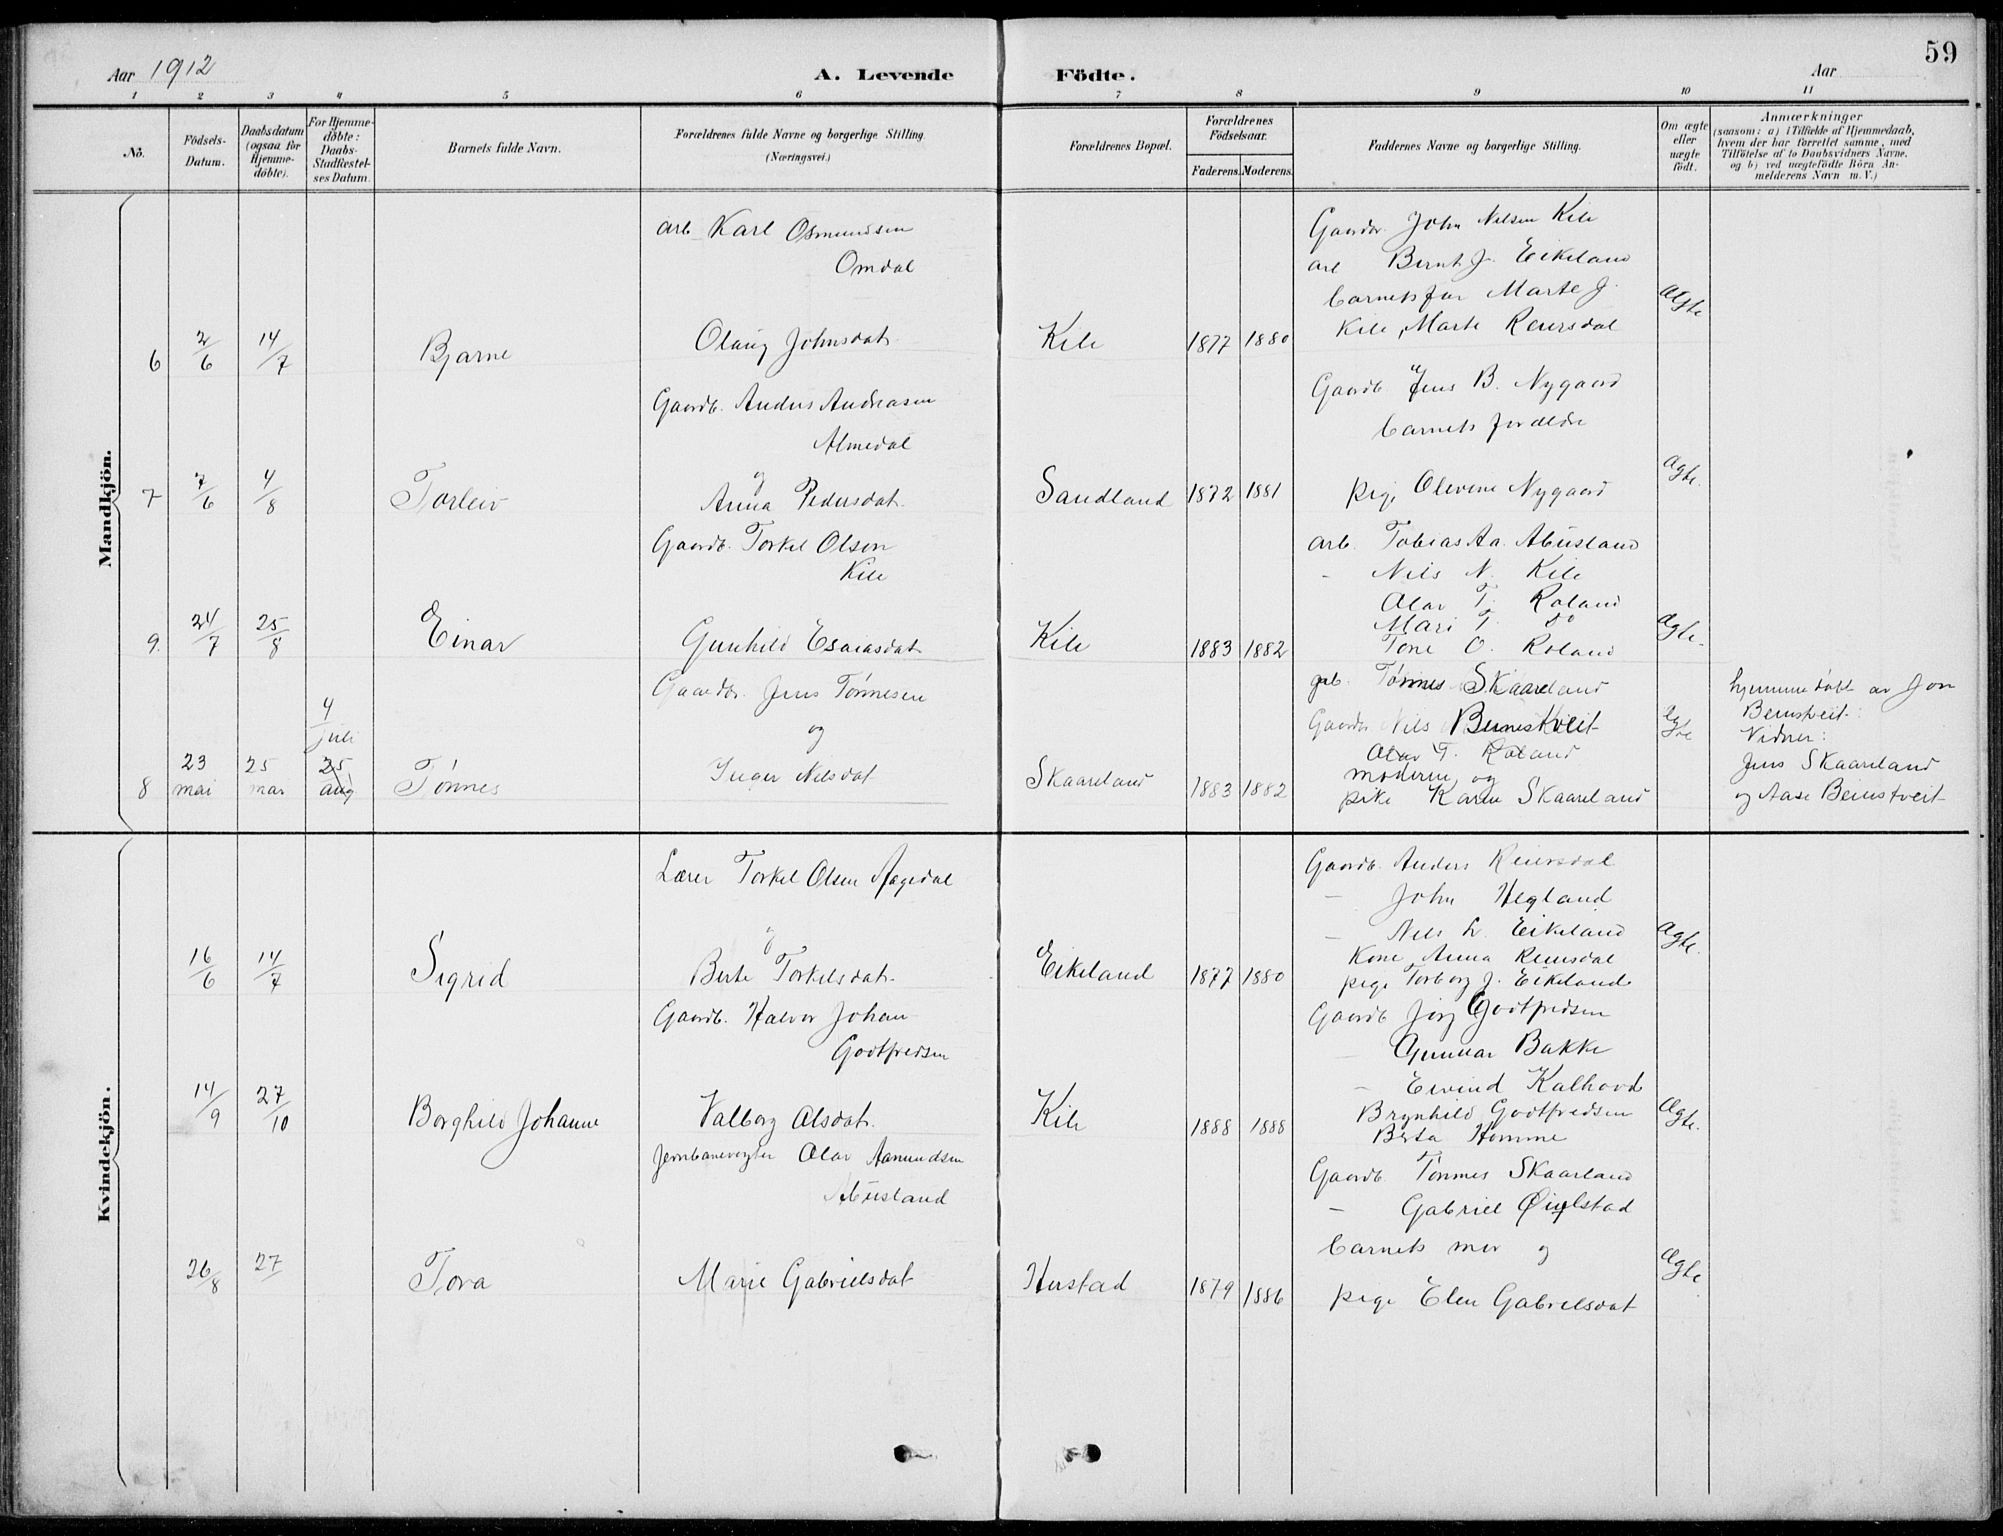 59
Aar 1912 A. Levende Födte. Aar
1 2 3 4 5 6 7 8 9 10 11
Nö.
Födsels-Datum.
Daabsdatum (ogsaa for Hjemme-døbte).
For Hjemme-døbte: Daabs-Stadfæstel-ses Datum.
Barnets fulde Navn.
Forældrenes fulde Navne og borgerlige Stilling.
(Næringsvei.)
Forældrenes Bopæl.
Forældrenes Födselsaar.
Faderens. Moderens.
Faddernes Navne og borgerlige Stilling.
Om ægte eller uægte födt.
Anmærkninger
(saasom: a) i Tilfælde af Hjemmedaab,
hvem der har forrettet samme, med
Tilföielse af to Daabsvidners Navne,
og b) ved uægtefödte Börn An-
melderens Navn m. V.)
Mandkjön.
arb. Karl Osmundsen
Omdal
6 2/6 14/7 Bjarne Olaug Johnsdat. Kile 1877 1880
Gaardb. John Nilsen Kile
arb Bernt J. Eikeland
barnets far Marte J.
Kile, Marte Reiersdal
Ægte
Gaardb. Anders Andreasen
Almedal
og
7 7/6 4/8 Torleiv Anna Pedersdat. Sandland 1872 1881
Gaardb. Jens B. Nygaard
barnets foreldre
pige Olevine Nygaard
Ægte.
Gaardb. Torkel Olsen
Kile
9. 24/7 25/8 Einar Gunhild Esaiasdat Kile 1883 1882
arb. Tobias Aa. Abusland
- Nils N. Kile
Olav T. Roland
Mari T. do
Tone O. Roland
Ægte.
Gaardbr. Jens Tønnesen
og
8 23 mai 25 mai 4 juli 25 aug Tønnes Inger Nilsdat Skaareland 1883 1882
Tønnes Skaareland
Gaardbr Nils Beinestveit
Olav T. Roland
moderen og
pike Karen Skaareland
Ægte
hjemmedøbt av Jon
Beinstveit.
Vidner:
Jens Skaareland
og Aase Beinstveit
Kvindekjön.
Lærer Torkel Olsen Aagedal
og
16/6 14/7 Sigrid Berte Torkelsdat. Eikeland 1877 1880
Gaardb. Anders Reiersdal
- John Hegland
- Nils L. Eikeland
Kone Anna Reiersdal
pige Torborg J. Eikeland
Ægte.
Gaardb. Halvor Johan
Godtfredsen
14/9 27/10 Borghild Johanne Valborg Olsdat. Kile 1888 1888
Gaardb Godtfredsen
Gunnar Bakke
- Eivind Kalhovd
Brynhild Godtfredsen
Berta Homme
Ægte.
Jernbanevogter Olav Aamundsen
Abusland
26/8 27/ Tora Marie Gabrielsdat Hustad 1879 1886
Gaardb. Tønnes Skaarland
- Gabriel Øiulstad
barnets mor og
pige Elen Gabrielsdat
Ægte